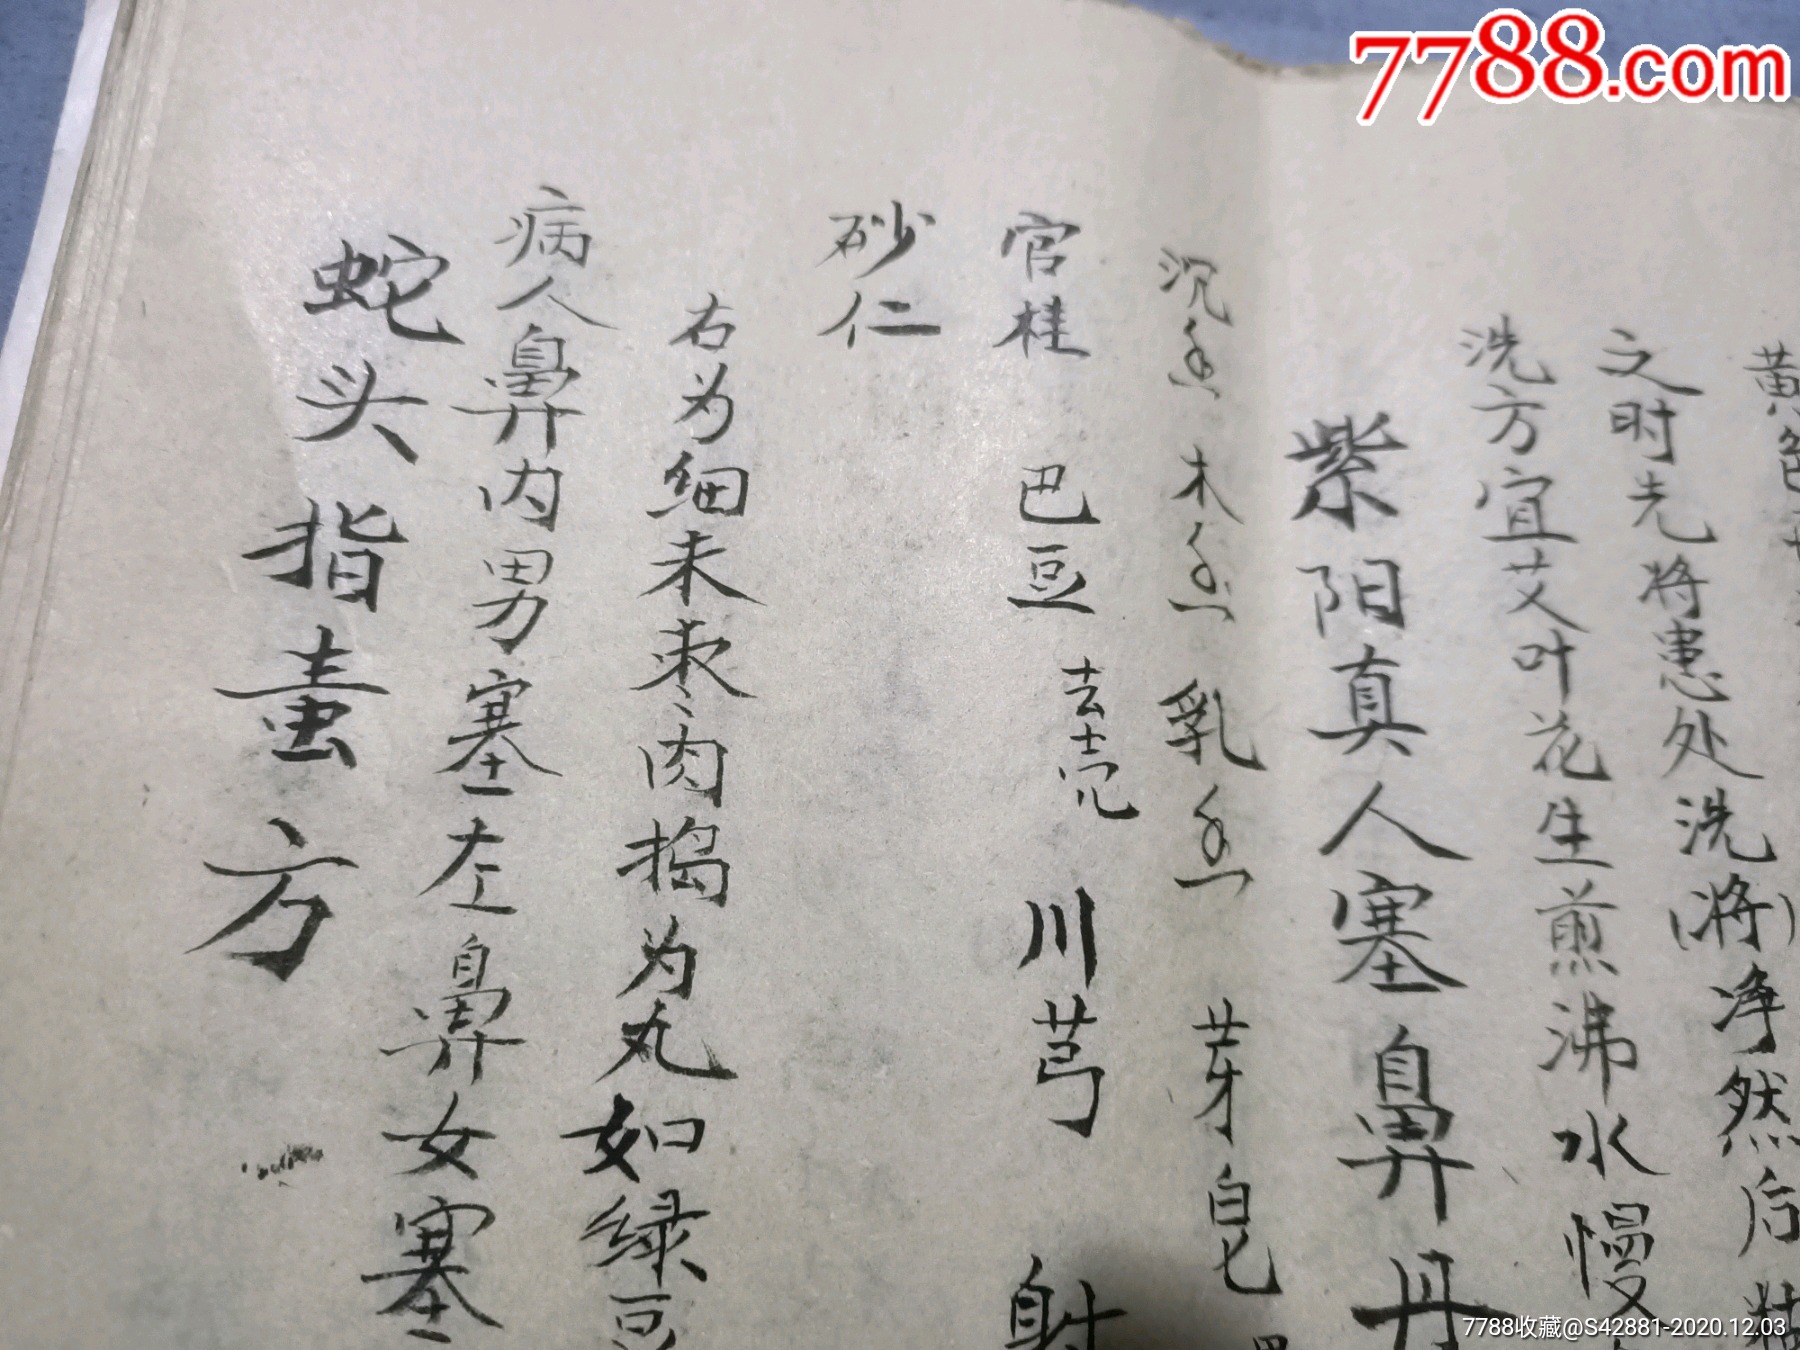 7788.com
黄色
文时先将患处洗(将)净然后
洗方宜艾叶花生煎沸水慢
紫阳真人塞鼻丹
沉香 木香 乳香 芽皂
官桂 巴豆 去壳 川芎 射
砂仁
右为细末枣肉捣为丸如绿豆
病人鼻内男塞左鼻女塞
蛇头指毒方
7788收藏@S42881-2020.12.03